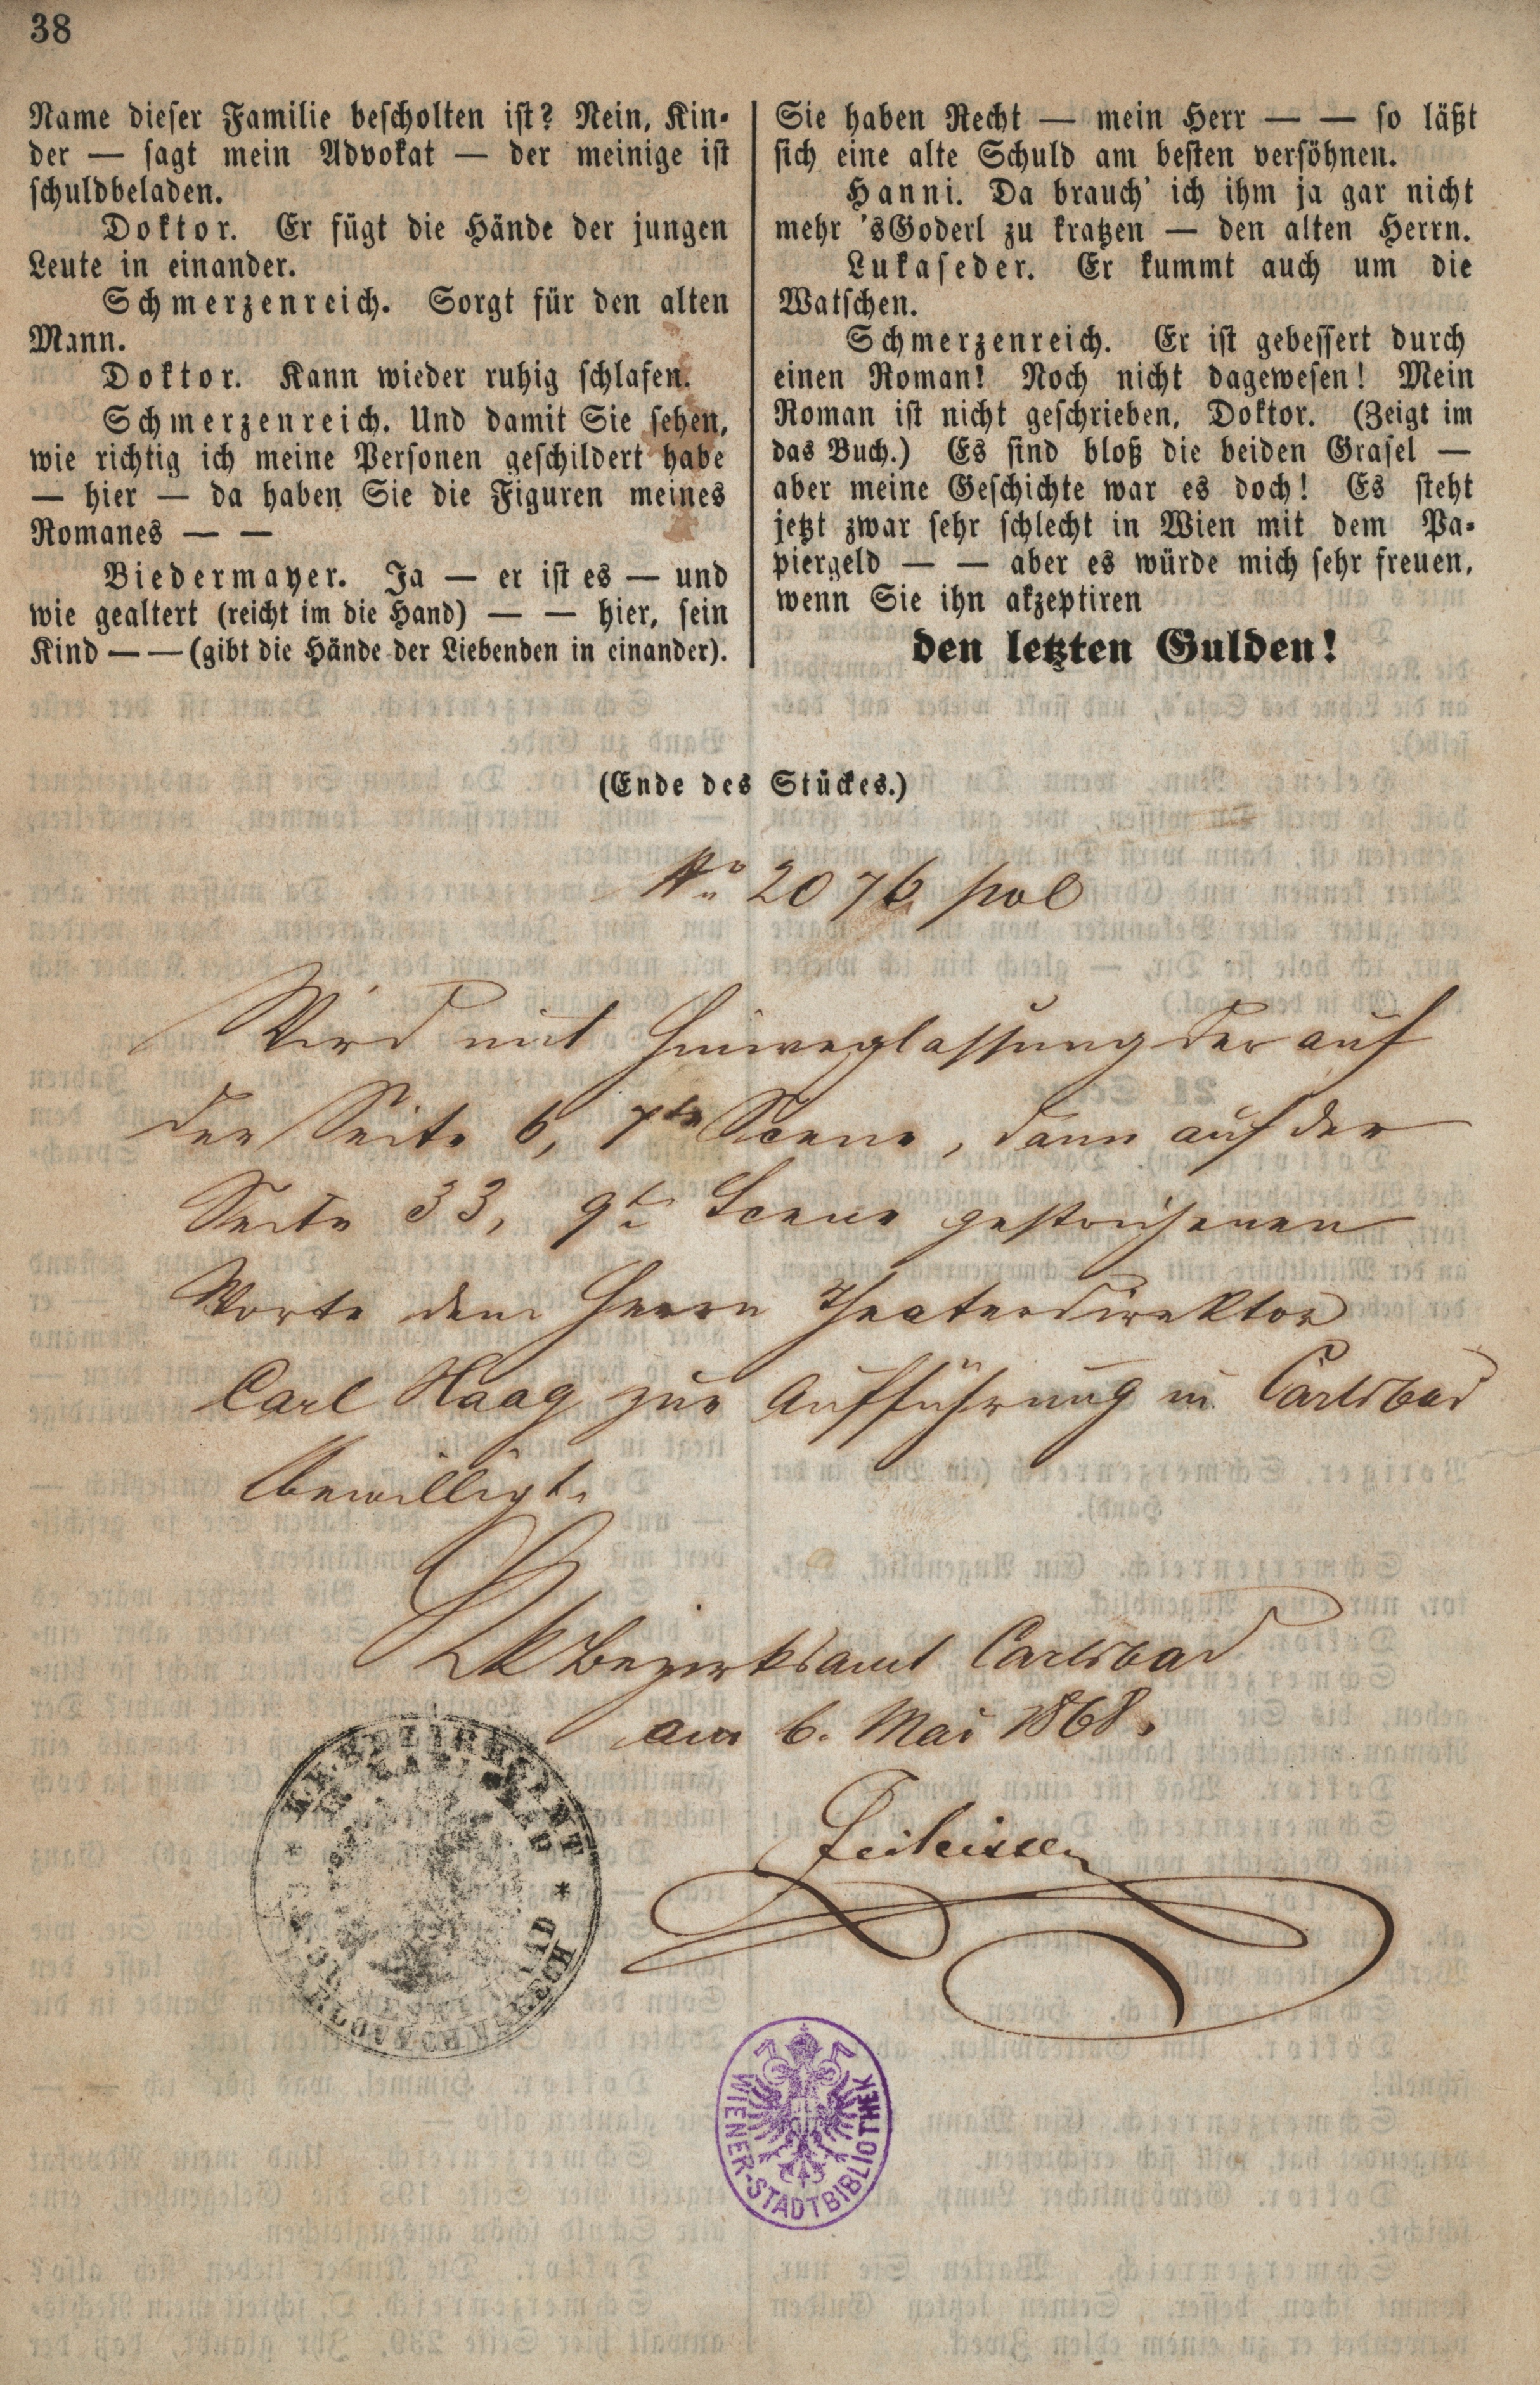 38
Name dieser Familie bescholten ist? Nein, Kin-
der — sagt mein Advokat — der meinige ist
schuldbeladen.
Doktor. Er fügt die Hände der jungen
Leute in einander.
Schmerzenreich. Sorgt für den alten
Mann.
Doktor. Kann wieder ruhig schlafen.
Schmerzenreich. Und damit Sie sehen,
wie richtig ich meine Personen geschildert habe
— hier — da haben Sie die Figuren meines
Romanes — —
Biedermayer. Ja — er ist es — und
wie gealtert (reicht im die Hand) — — hier, sein
Kind — — (gibt die Hände der Liebenden in einander).
Sie haben Recht — mein Herr — — so läßt
sich eine alte Schuld am besten versöhnen.
Hanni. Da brauch' ich ihm ja gar nicht
mehr 'sGoderl zu kratzen — den alten Herrn.
Lukaseder. Er kummt auch um die
Watschen.
Schmerzenreich. Er ist gebessert durch
einen Roman! Noch nicht dagewesen! Mein
Roman ist nicht geschrieben, Doktor. (Zeigt im
das Buch.) Es sind bloß die beiden Grasel —
aber meine Geschichte war es doch! Es steht
jetzt zwar sehr schlecht in Wien mit dem Pa-
piergeld — — aber es würde mich sehr freuen,
wenn Sie ihn akzeptiren
den letzten Gulden!
(Ende des Stückes.)
No 2076 pol
Wird mit Hinweglassung der auf
der Seite 6, 7te Scene, dann auf der
Seite 33, 9te Scene gestrichenen
Worte dem Herrn Theaterdirektor
Carl Haag zur Aufführung in Carlsbad
bewilligt.
K k Bezirksamt Carlsbad
am 6. Mai 1868.
K. K. BEZIRKSAMT
WIENER-STADTBIBLIOTHEK